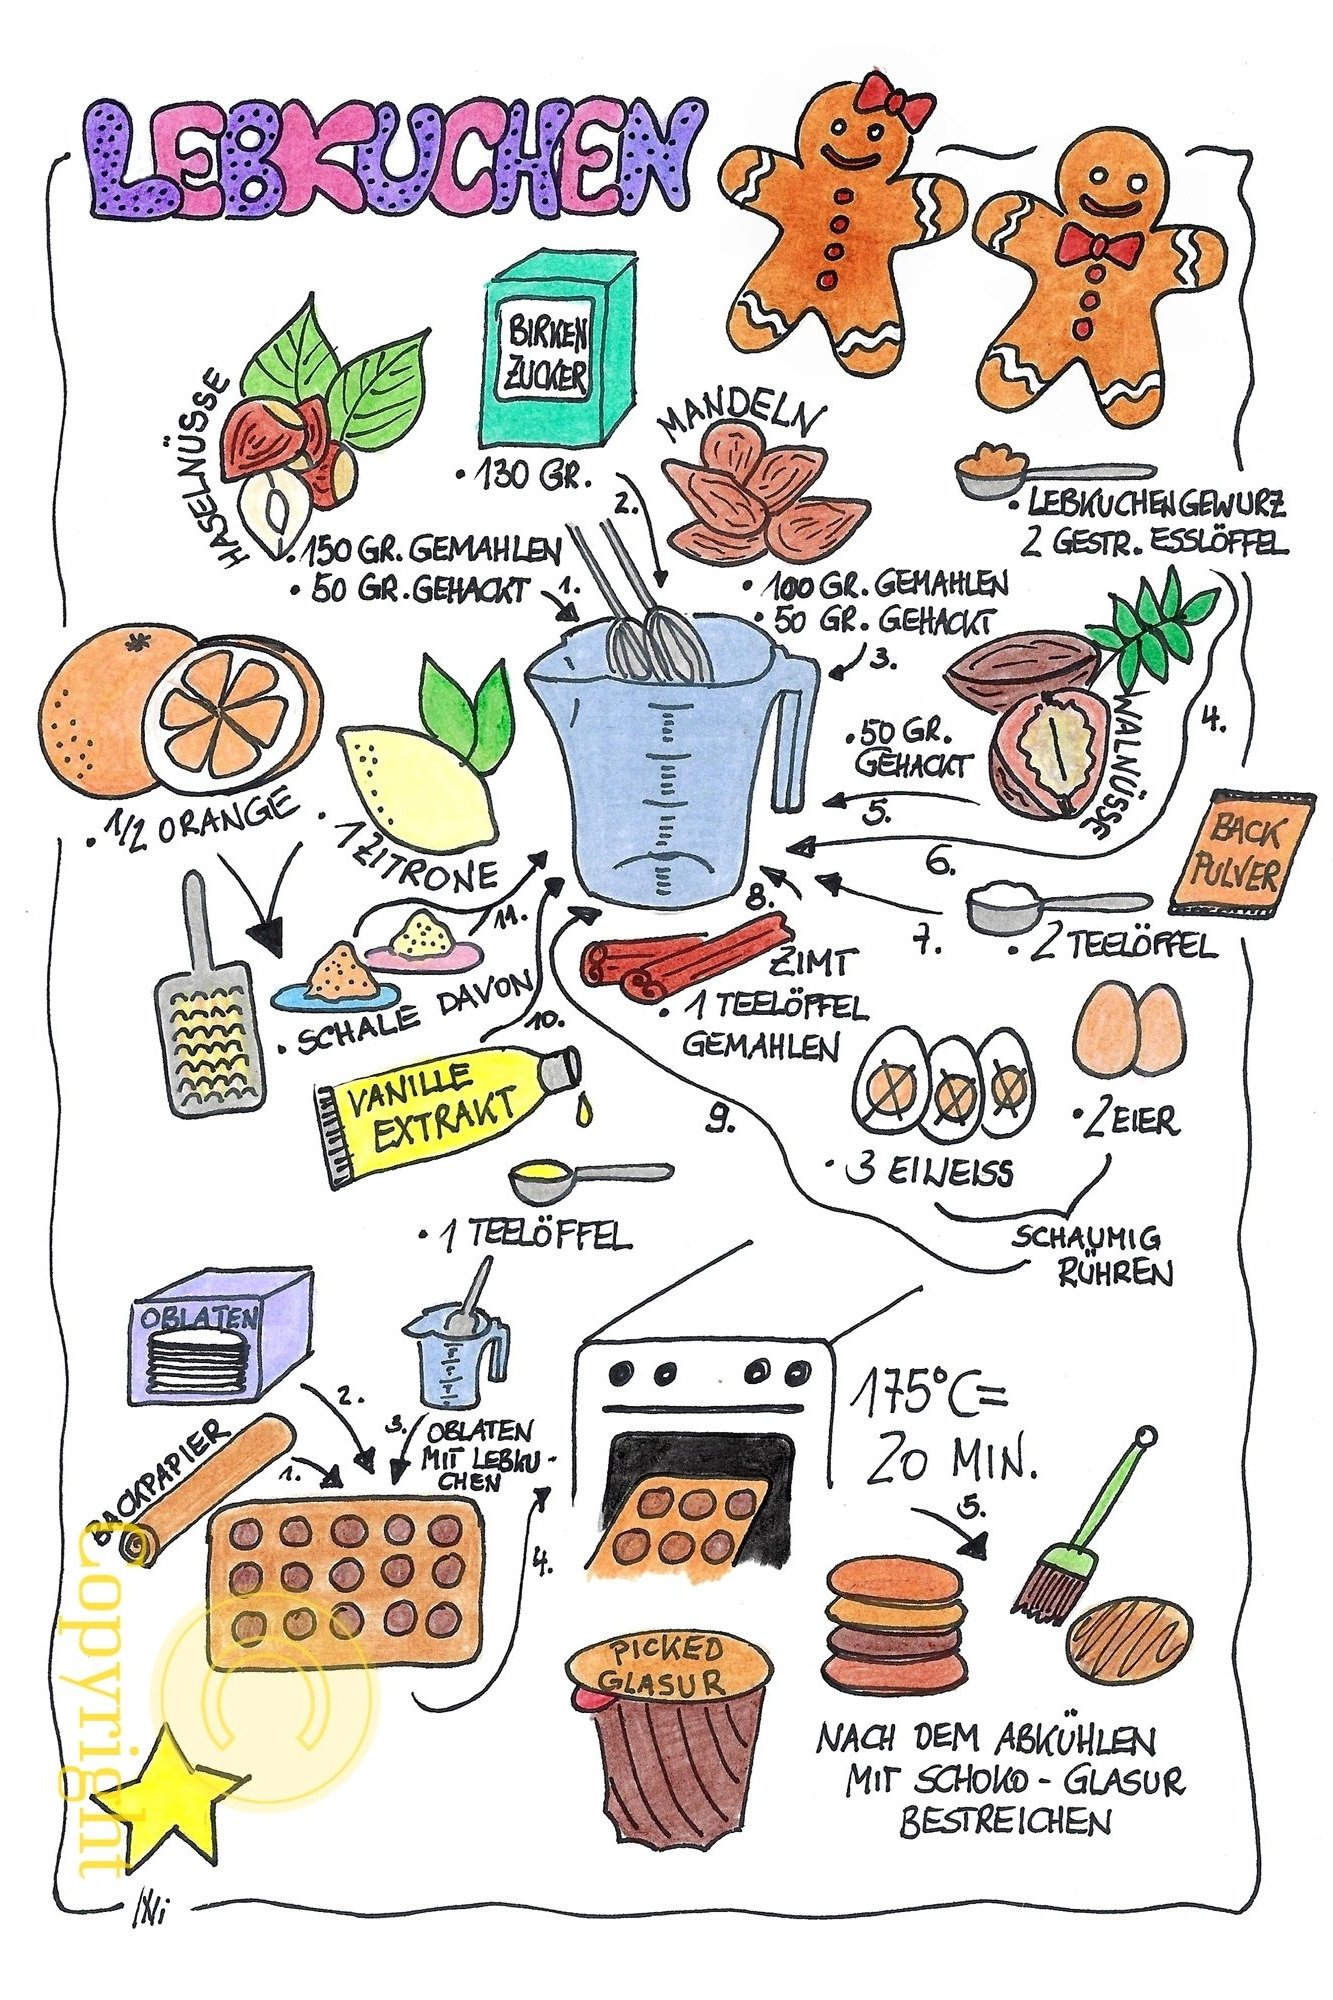 LEBKUCHEN
BIRKEN
ZUCKER
• 130 GR.
2.
HASELNÜSSE
• 150 GR. GEMAHLEN
• 50 GR. GEHACKT
1.
MANDELN
• 100 GR. GEMAHLEN
• 50 GR. GEHACKT
3.
• LEBKUCHENGEWURZ
2 GESTR. ESSLÖFFEL
4.
WALNÜSSE
• 50 GR.
GEHACKT
5.
6.
BACK
PULVER
7.
• 2 TEELÖFFEL
• 1/2 ORANGE
• 1 ZITRONE
11.
• SCHALE DAVON
10.
8.
ZIMT
• 1 TEELÖFFEL
GEMAHLEN
VANILLE
EXTRAKT
• 1 TEELÖFFEL
9.
• 3 EIWEISS
• 2 EIER
SCHAUMIG
RÜHREN
OBLATEN
2.
BACKPAPIER
1.
3.
OBLATEN
MIT LEBKU-
CHEN
4.
175°C=
20 MIN.
5.
PICKED
GLASUR
NACH DEM ABKÜHLEN
MIT SCHOKO-GLASUR
BESTREICHEN
Copyright
©